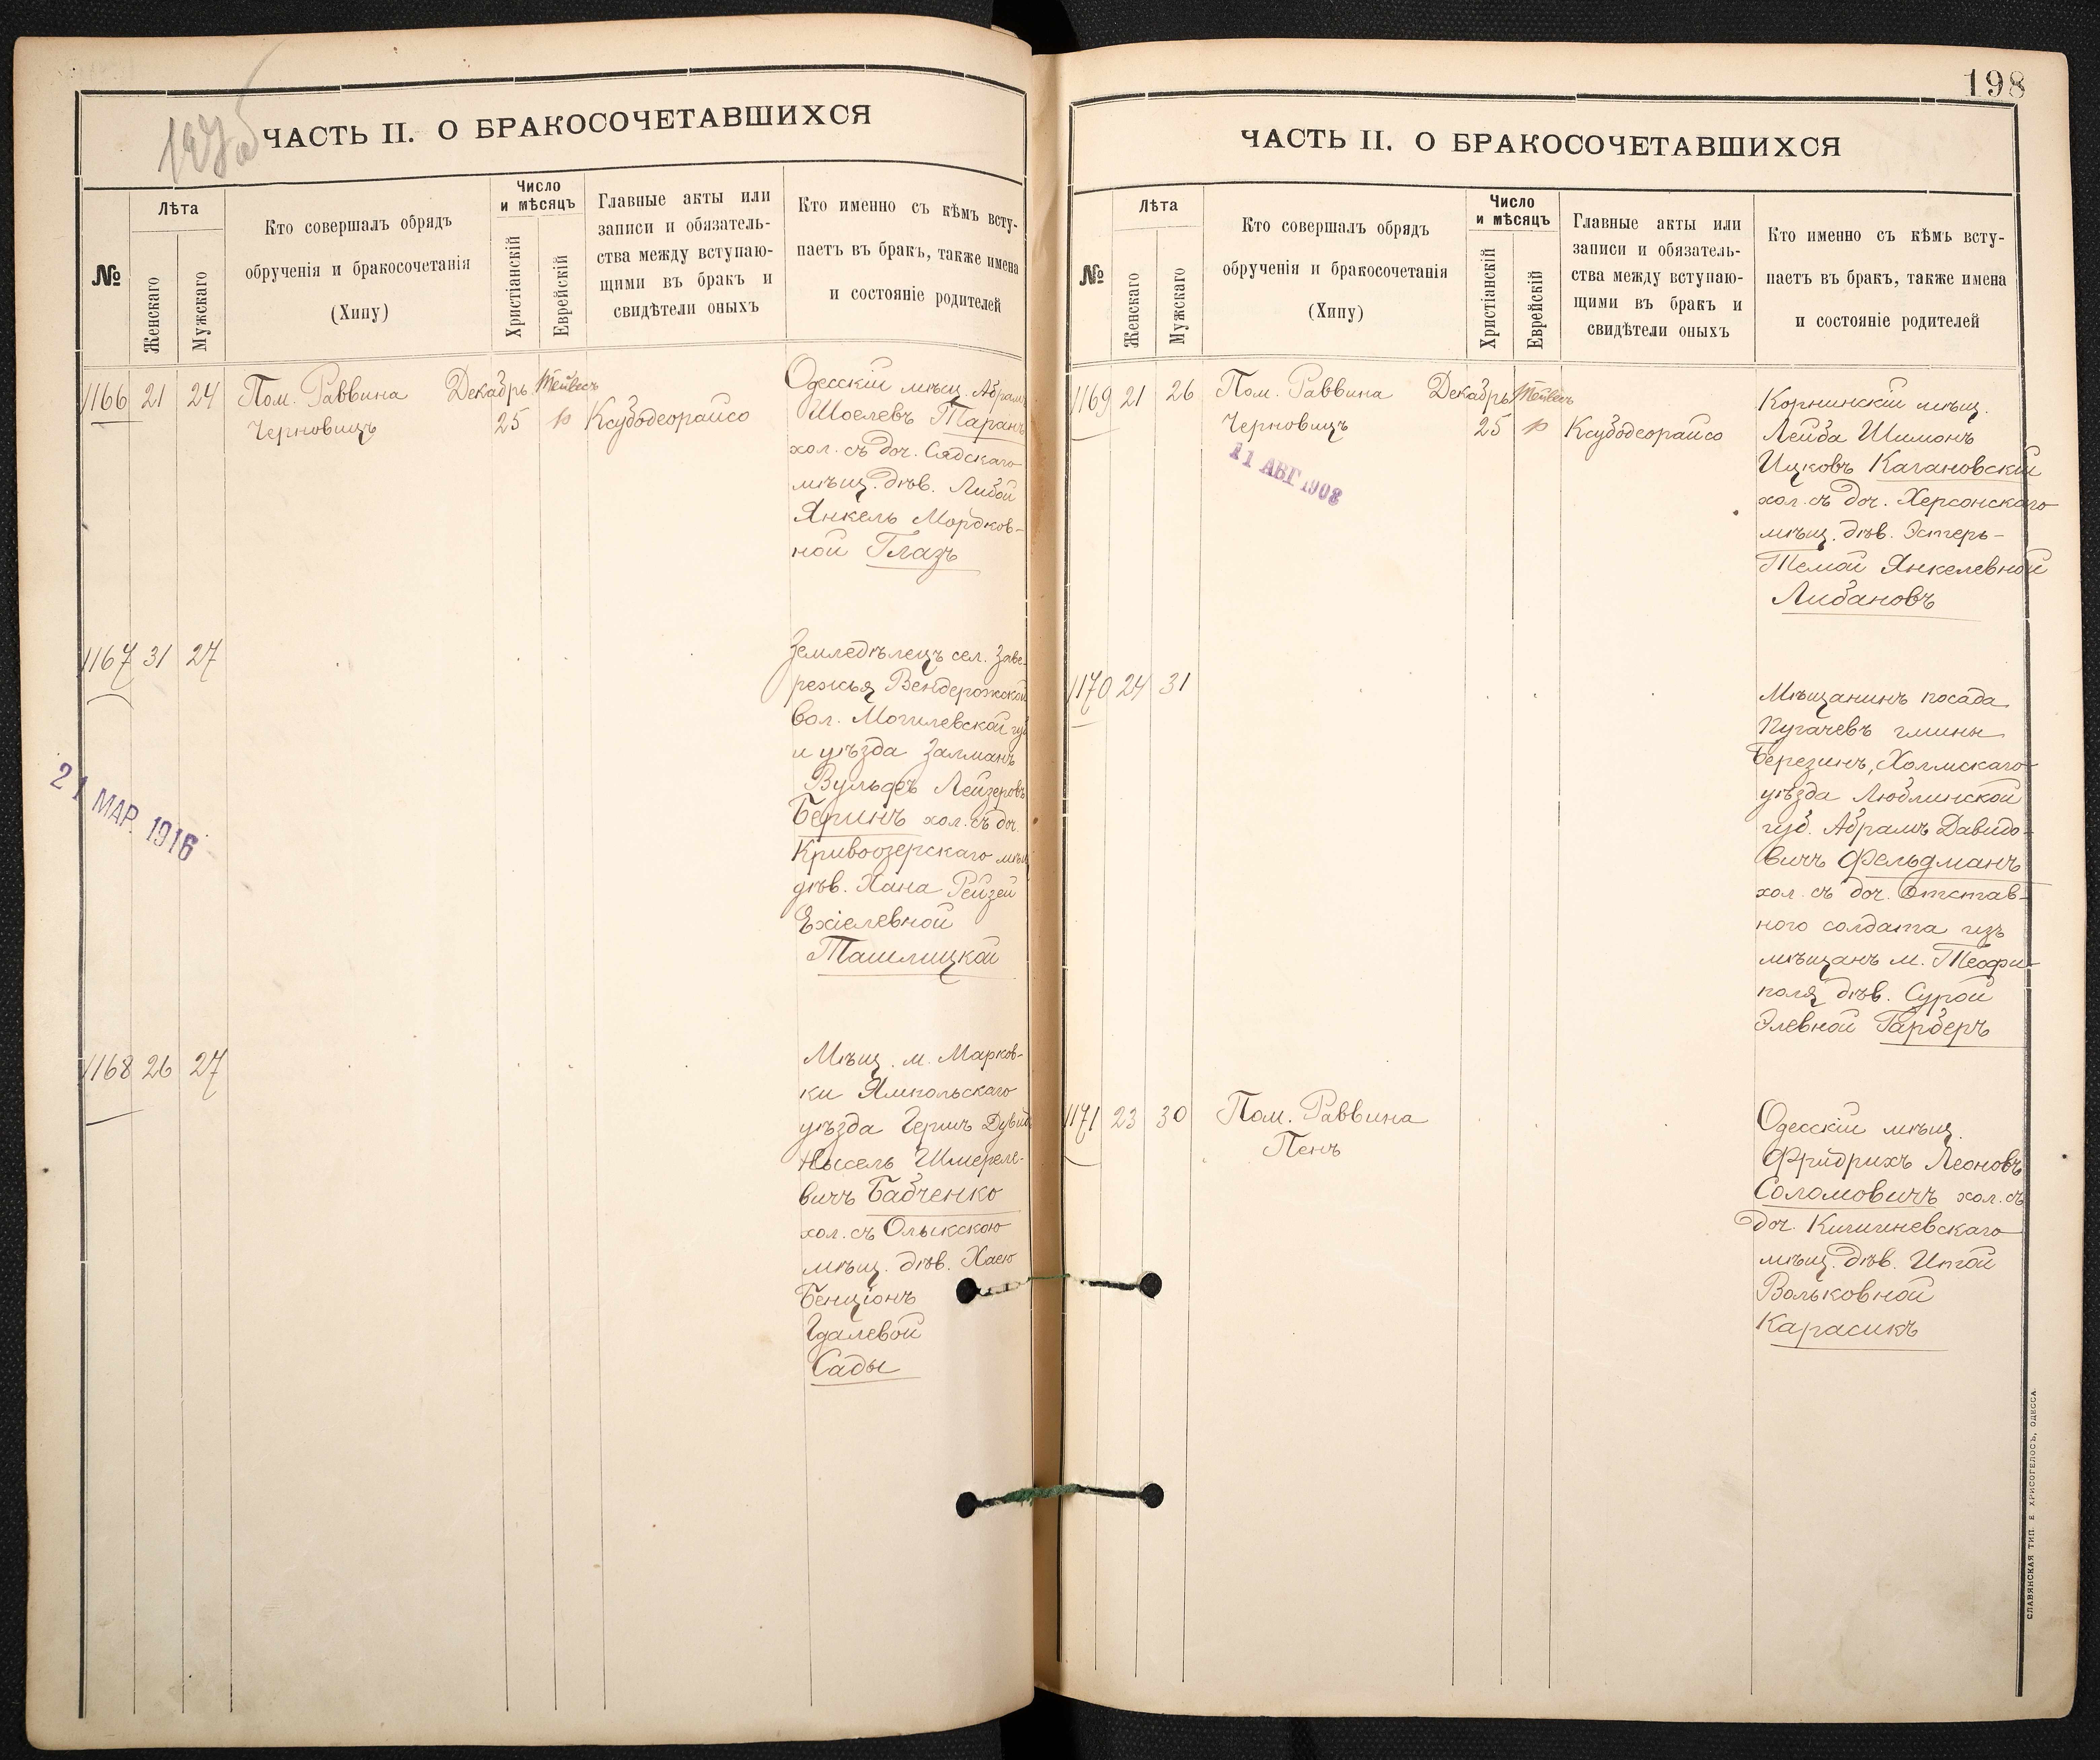 197об
ЧАСТЬ II. О БРАКОСОЧЕТАВШИХСЯ
№
Лѣта
Женскаго
Мужскаго
Кто совершалъ обрядъ
обрученія и бракосочетанія
(Хипу)
Число
и мѣсяцъ
Христіанскій
Еврейскій
Главные акты или
записи и обязатель-
ства между вступаю-
щими въ бракъ и
свидѣтели оныхъ
Кто именно съ кѣмъ всту-
паетъ въ бракъ, также имена
и состояніе родителей
1166 21 24
Пом. Раввина
Черновицъ
Декабрь
25
Тейвесъ
Ксубодеорайсо
Одесскій мѣщ. Абрамъ
Шоелевъ Таранъ
хол. съ доч. Сядскаго
мѣщ. дѣв. Либой
Янкель Мордков-
ной Глазъ
1167 31 27
Земледѣлецъ сел. Заве-
режья Вендерожской
вол. Могилевской губ
и уѣзда Залманъ
Вульфъ Лейзеровъ
Беринъ хол. съ доч.
Кривоозерскаго мѣщ
дѣв. Хана Рейзей
Ехіелевной
Ташлицкой
21 МАР. 1916
1168 26 27
Мѣщ. м. Марков-
ки Ямпольскаго
уѣзда Гершъ Дувид
Нысель Шмереле-
вичъ Бабченко
хол. съ Олыкскою
мѣщ. дѣв. Хаею
Бенціонъ
Гдалевой
Сады
198
ЧАСТЬ II. О БРАКОСОЧЕТАВШИХСЯ
№
Лѣта
Женскаго
Мужскаго
Кто совершалъ обрядъ
обрученія и бракосочетанія
(Хипу)
Число
и мѣсяцъ
Христіанскій
Еврейскій
Главные акты или
записи и обязатель-
ства между вступаю-
щими въ бракъ и
свидѣтели оныхъ
Кто именно съ кѣмъ всту-
паетъ въ бракъ, также имена
и состояніе родителей
1169 21 26
Пом. Раввина
Черновицъ
11 АВГ 1908
Декабрь
25
Тейвесъ
Ксубодеорайсо
Корнинскій мѣщ.
Лейба Шимонъ
Ицковъ Кагановскій
хол. съ доч. Херсонскаго
мѣщ. дѣв. Эстерь-
Темой Янкелевной
Либановъ
1170 24 31
Мѣщанинъ посада
Пугачевъ гмины
Березинъ, Холмскаго
уѣзда Люблинской
губ. Абрамъ Давидо-
вичъ Фельдманъ
хол. съ доч. отстав-
ного солдата изъ
мѣщанъ м. Теофи-
поля дѣв. Сурой
Элевной Гарберъ
1171 23 30
Пом. Раввина
Пенъ
Одесскій мѣщ.
Фридрихъ Леоновъ
Соломовичъ хол. съ
доч. Кишиневскаго
мѣщ. дѣв. Итой
Вольковной
Карасикъ
СЛАВЯНСКАЯ ТИП. Е. ХРИСОГЕЛОСЪ, ОДЕССА.